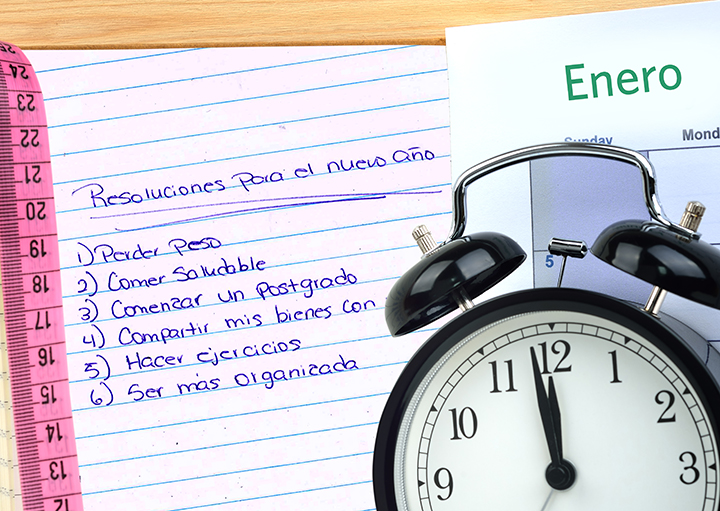 Enero
Sunday
Mond
5
Resoluciones para el nuevo año
1) Perder peso
2) Comer Saludable
3) Comenzar un Postgrado
4) Compartir mis bienes con
5) Hacer ejercicios
6) Ser más organizada
25
24
23
22
21
20
19
18
17
16
15
14
13
12
11
12
1
10
2
9
3